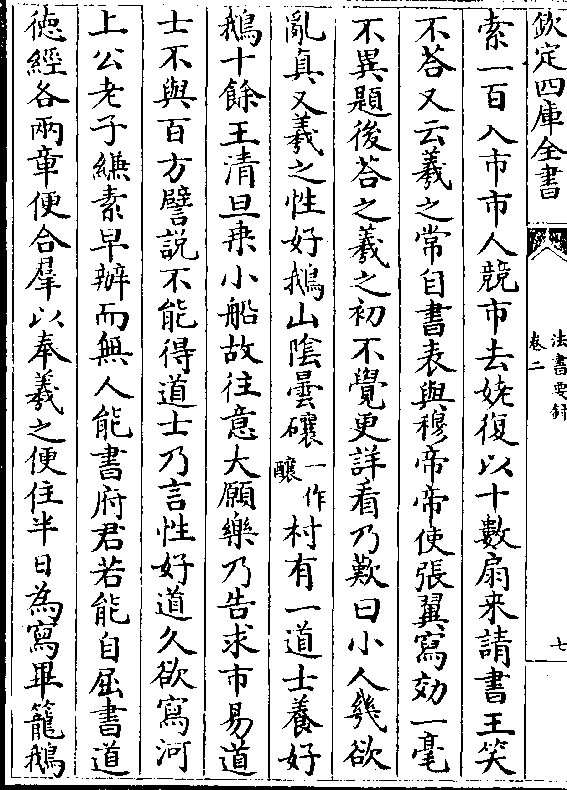 欽定四庫全書
法書要録
卷二
七
索一百入市市人競市去姥復以十數扇来請書王笑
不荅又云羲之常自書表與穆帝帝使張翼寫効一毫
不異題後荅之羲之初不覺更詳看乃歎曰小人㡬欲
亂真又羲之性好鵝山隂曇𥖁一作釀村有一道士養好
鵝十餘王清旦乗小船故往意大願樂乃告求市易道
士不與百方譬說不能得道士乃言性好道久欲寫河
上公老子縑素早辦而無人能書府君若能自屈書道
徳經各兩章便合羣以奉羲之便住半日為寫畢籠鵝